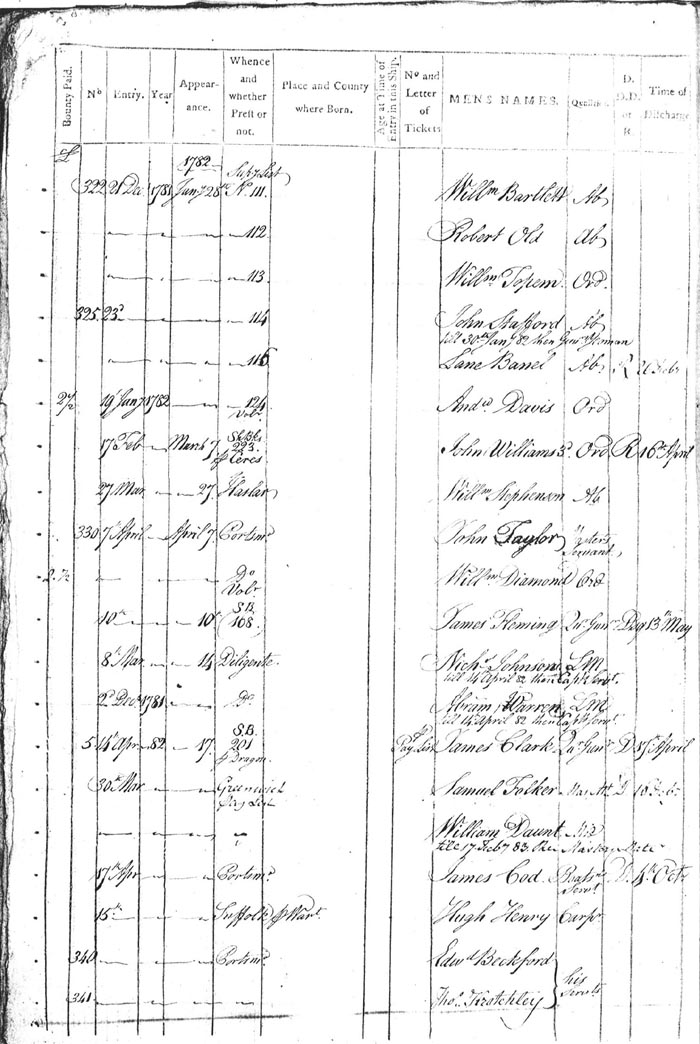 Bounty Paid. Nº Entry. Year Appear-ance. Whence and whether Prest or not. Place and County where Born. Age at Time of Entry in this Ship. Nº and Letter of Tickets MENS NAMES. Qualities. D. D.D. or R. Time of Discharge
£
1782 Supy List
322 21 Dec 1781 Jany 28th Nº 111. Willm Bartlett Ab
— — — 112 Robert Old Ab
— — — 113 Willm Topem Ord.
325 23d — — 114 John Stafford Ab
till 30th Jany 82 then Yeoman
— — — 115 Lane Banel Ab R
2½ 19 Jany 1782 — 124 Andw Davis Ord
Volr
17 Feb — March 7 223 John Williams 3d Ord R 16th April
Ceres
27 Mar — — 27. Haslar Willm Stephenson Ab
330 7 April — April 7. Portsmo John Taylor Servant
2.½ — — — Do Willm Diamond Ord
Volr
10th — — 10th S.B. 108. James Fleming Qr Gunr 13th May
8th Mar — — 14 Diligente Nichs Johnson LM
till 14 April 82 then Capts Servt.
2d Decr 1781 — Do Abram Warren LM
till 14 April 82 then Capts Servt
5. 14 Apr 82 — 17. S.B. 201 Pay List James Clark Qr Gunr D 17th April
Dragon
30th Mar — — Greenwich Samuel Folker
Pay List
— — — " William Daunt Mid
till 17 Feby 83 then Masters Mate
17th Apr — — Portsmo James Cod Servt D. 4th Octr
15th — — Suffolk Wart. Hugh Henry Carpr
340 — — — Portsmo Edwd Beckford
his Servts
341 — — — Thos Kratchley